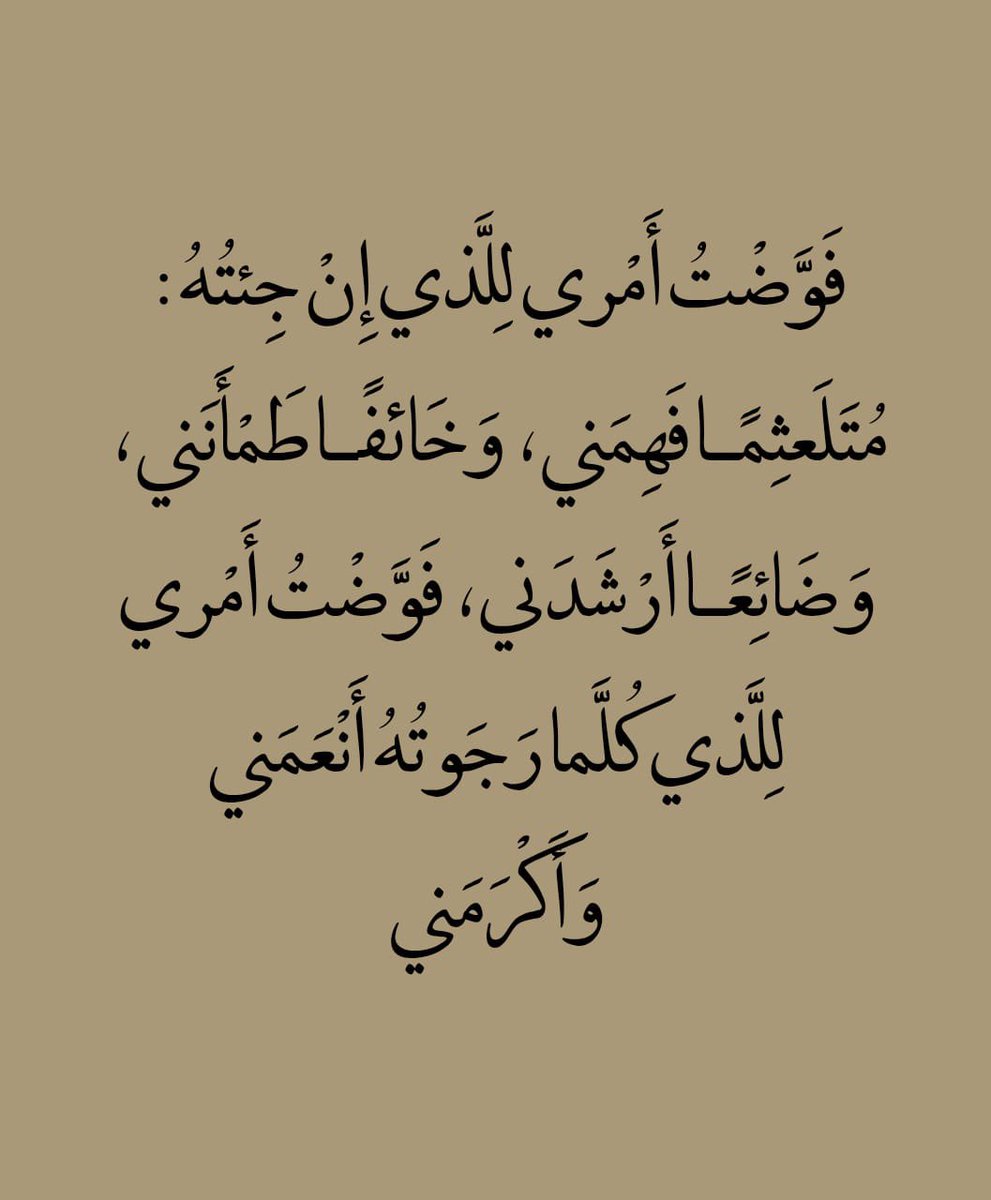 فَوَّضْتُ أَمْري لِلَّذي إِنْ جِئتُهُ :
مُتَلَعثِمًـا فَهِمَني، وَخَائفًـا طَمْأَنَني،
وَضَائِعًـا أَرْشَدَني، فَوَّضْتُ أَمْري
لِلَّذي كُلَّما رَجَوتُهُ أَنْعَمَني
وَأَكْرَمَني